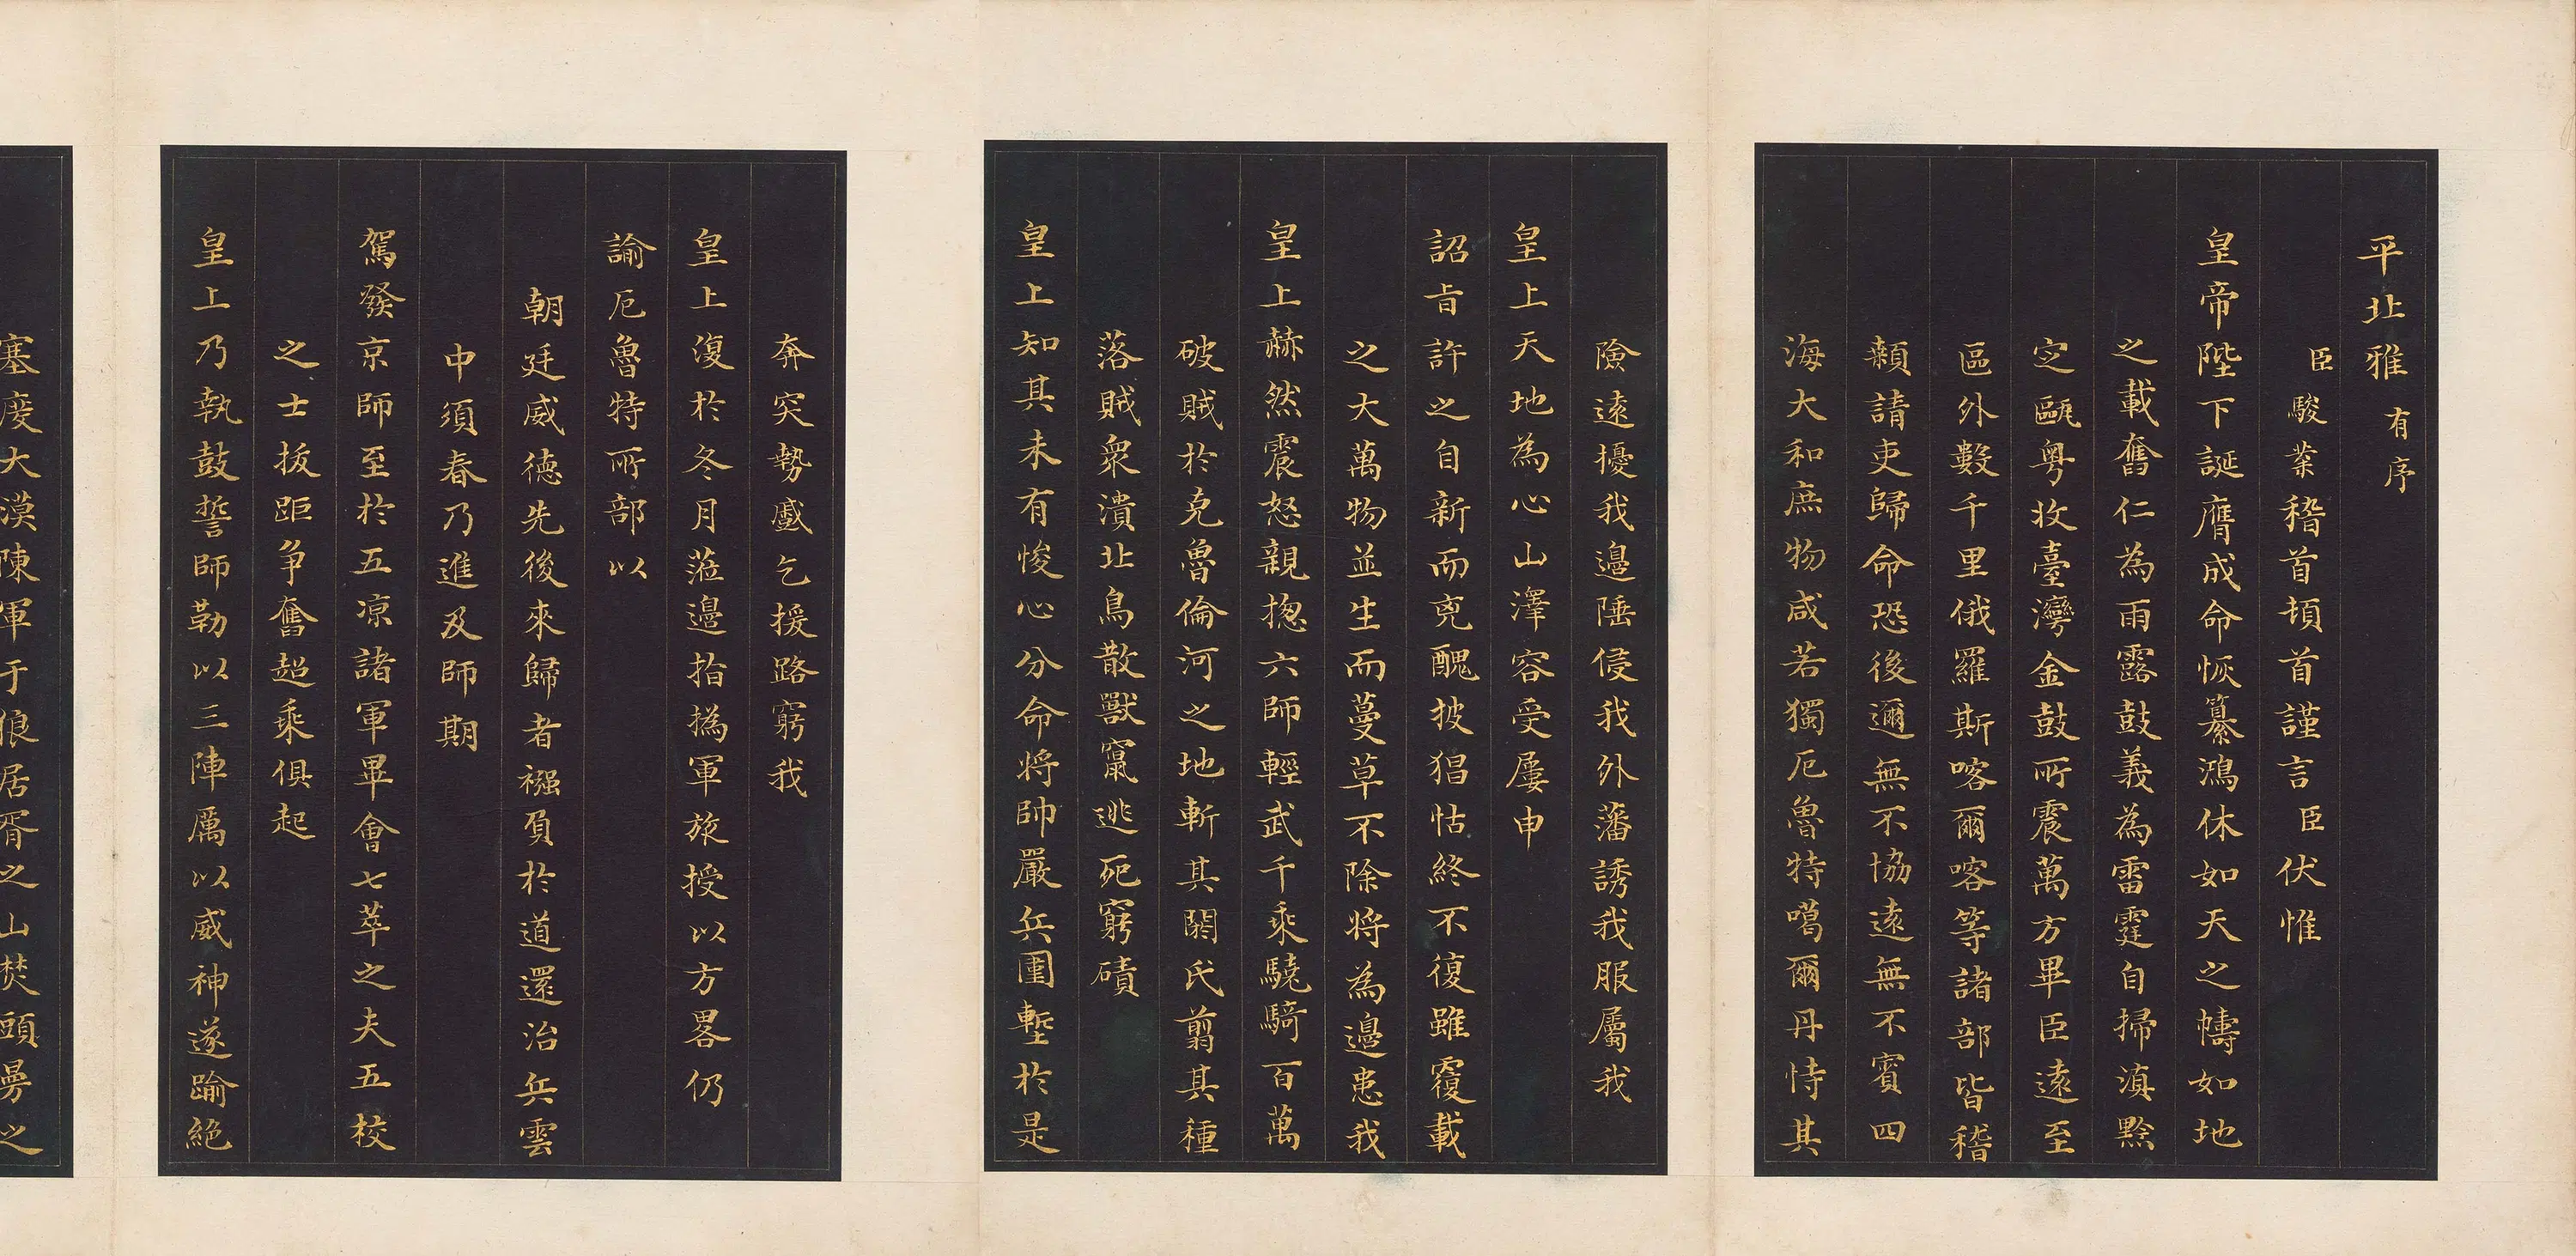 平北雅有序
臣駿業稽首頓首謹言臣伏惟
皇帝陛下誕膺成命恢纂鴻休如天之幬如地
之載奮仁為雨露鼓義為雷霆自掃滇黔
定甌粵收臺灣金鼓所震萬方畢臣遠至
區外數千里俄羅斯喀爾喀等諸部皆稽
顙請吏歸命恐後邇無不協遠無不賓四
海大和庶物咸若獨厄魯特噶爾丹恃其
險遠擾我邊陲侵我外藩誘我服屬我
皇上天地為心山澤容受屢申
詔旨許之自新而兇醜披猖怙終不復雖覆載
之大萬物並生而蔓草不除將為邊患我
皇上赫然震怒親揔六師輕武千乘驍騎百萬
破賊於克魯倫河之地斬其閼氏翦其種
落賊眾潰北鳥散獸竄逃死窮磧
皇上知其未有悛心分命將帥嚴兵圍塹於是
奔突勢蹙乞援路窮我
皇上復於冬月蒞邊指撝軍旅授以方畧仍
諭厄魯特所部以
朝廷威德先後來歸者襁負於道還治兵雲
中須春乃進及師期
駕發京師至於五凉諸軍畢會七萃之夫五校
之士拔距爭奮超乘俱起
皇上乃執鼓誓師勒以三陣厲以威神遂踰絕
塞度大漠陳軍于狼居胥之山焚頭曼之